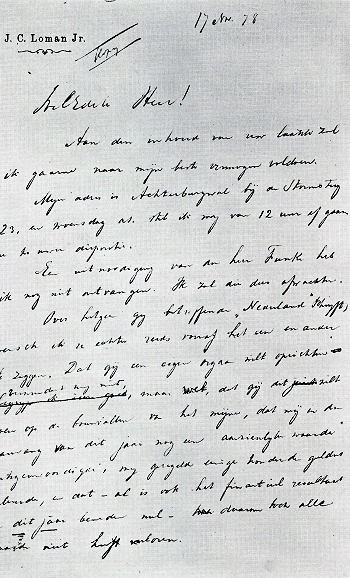 17 Nov. 78
J. C. Loman Jr.
WelEdele Heer!
Aan den inhoud van uw laatste zal
ik gaarne naar mijn beste vermogen voldoen.
Mijn adres is Achterburgwal bij de Stoofsteeg
23, en woensdag as. heb ik nog van 12 uur af gaan
Een uitnoodiging van den heer Funke heb
ik nog niet ontvangen. Ik zal die dus afwachten.
Over hetgeen gij betreffende „Nederland" schrijft,
wensch ik u echter reeds vooraf het een en ander
te zeggen. Dat gij een eigen orgaan wilt oprichten
verwondert mij niet, maar dat gij dit wilt
op de bouwvallen van het mijne, dat mij in den
aanvang van dit jaar nog een aanzienlijke waarde
vertegenwoordigde, mij geregeld eenige honderde guldens
en dat – al is ook het financieel resultaat
dit jaar beneden nul – daarom toch alle
waarde niet heeft verloren.